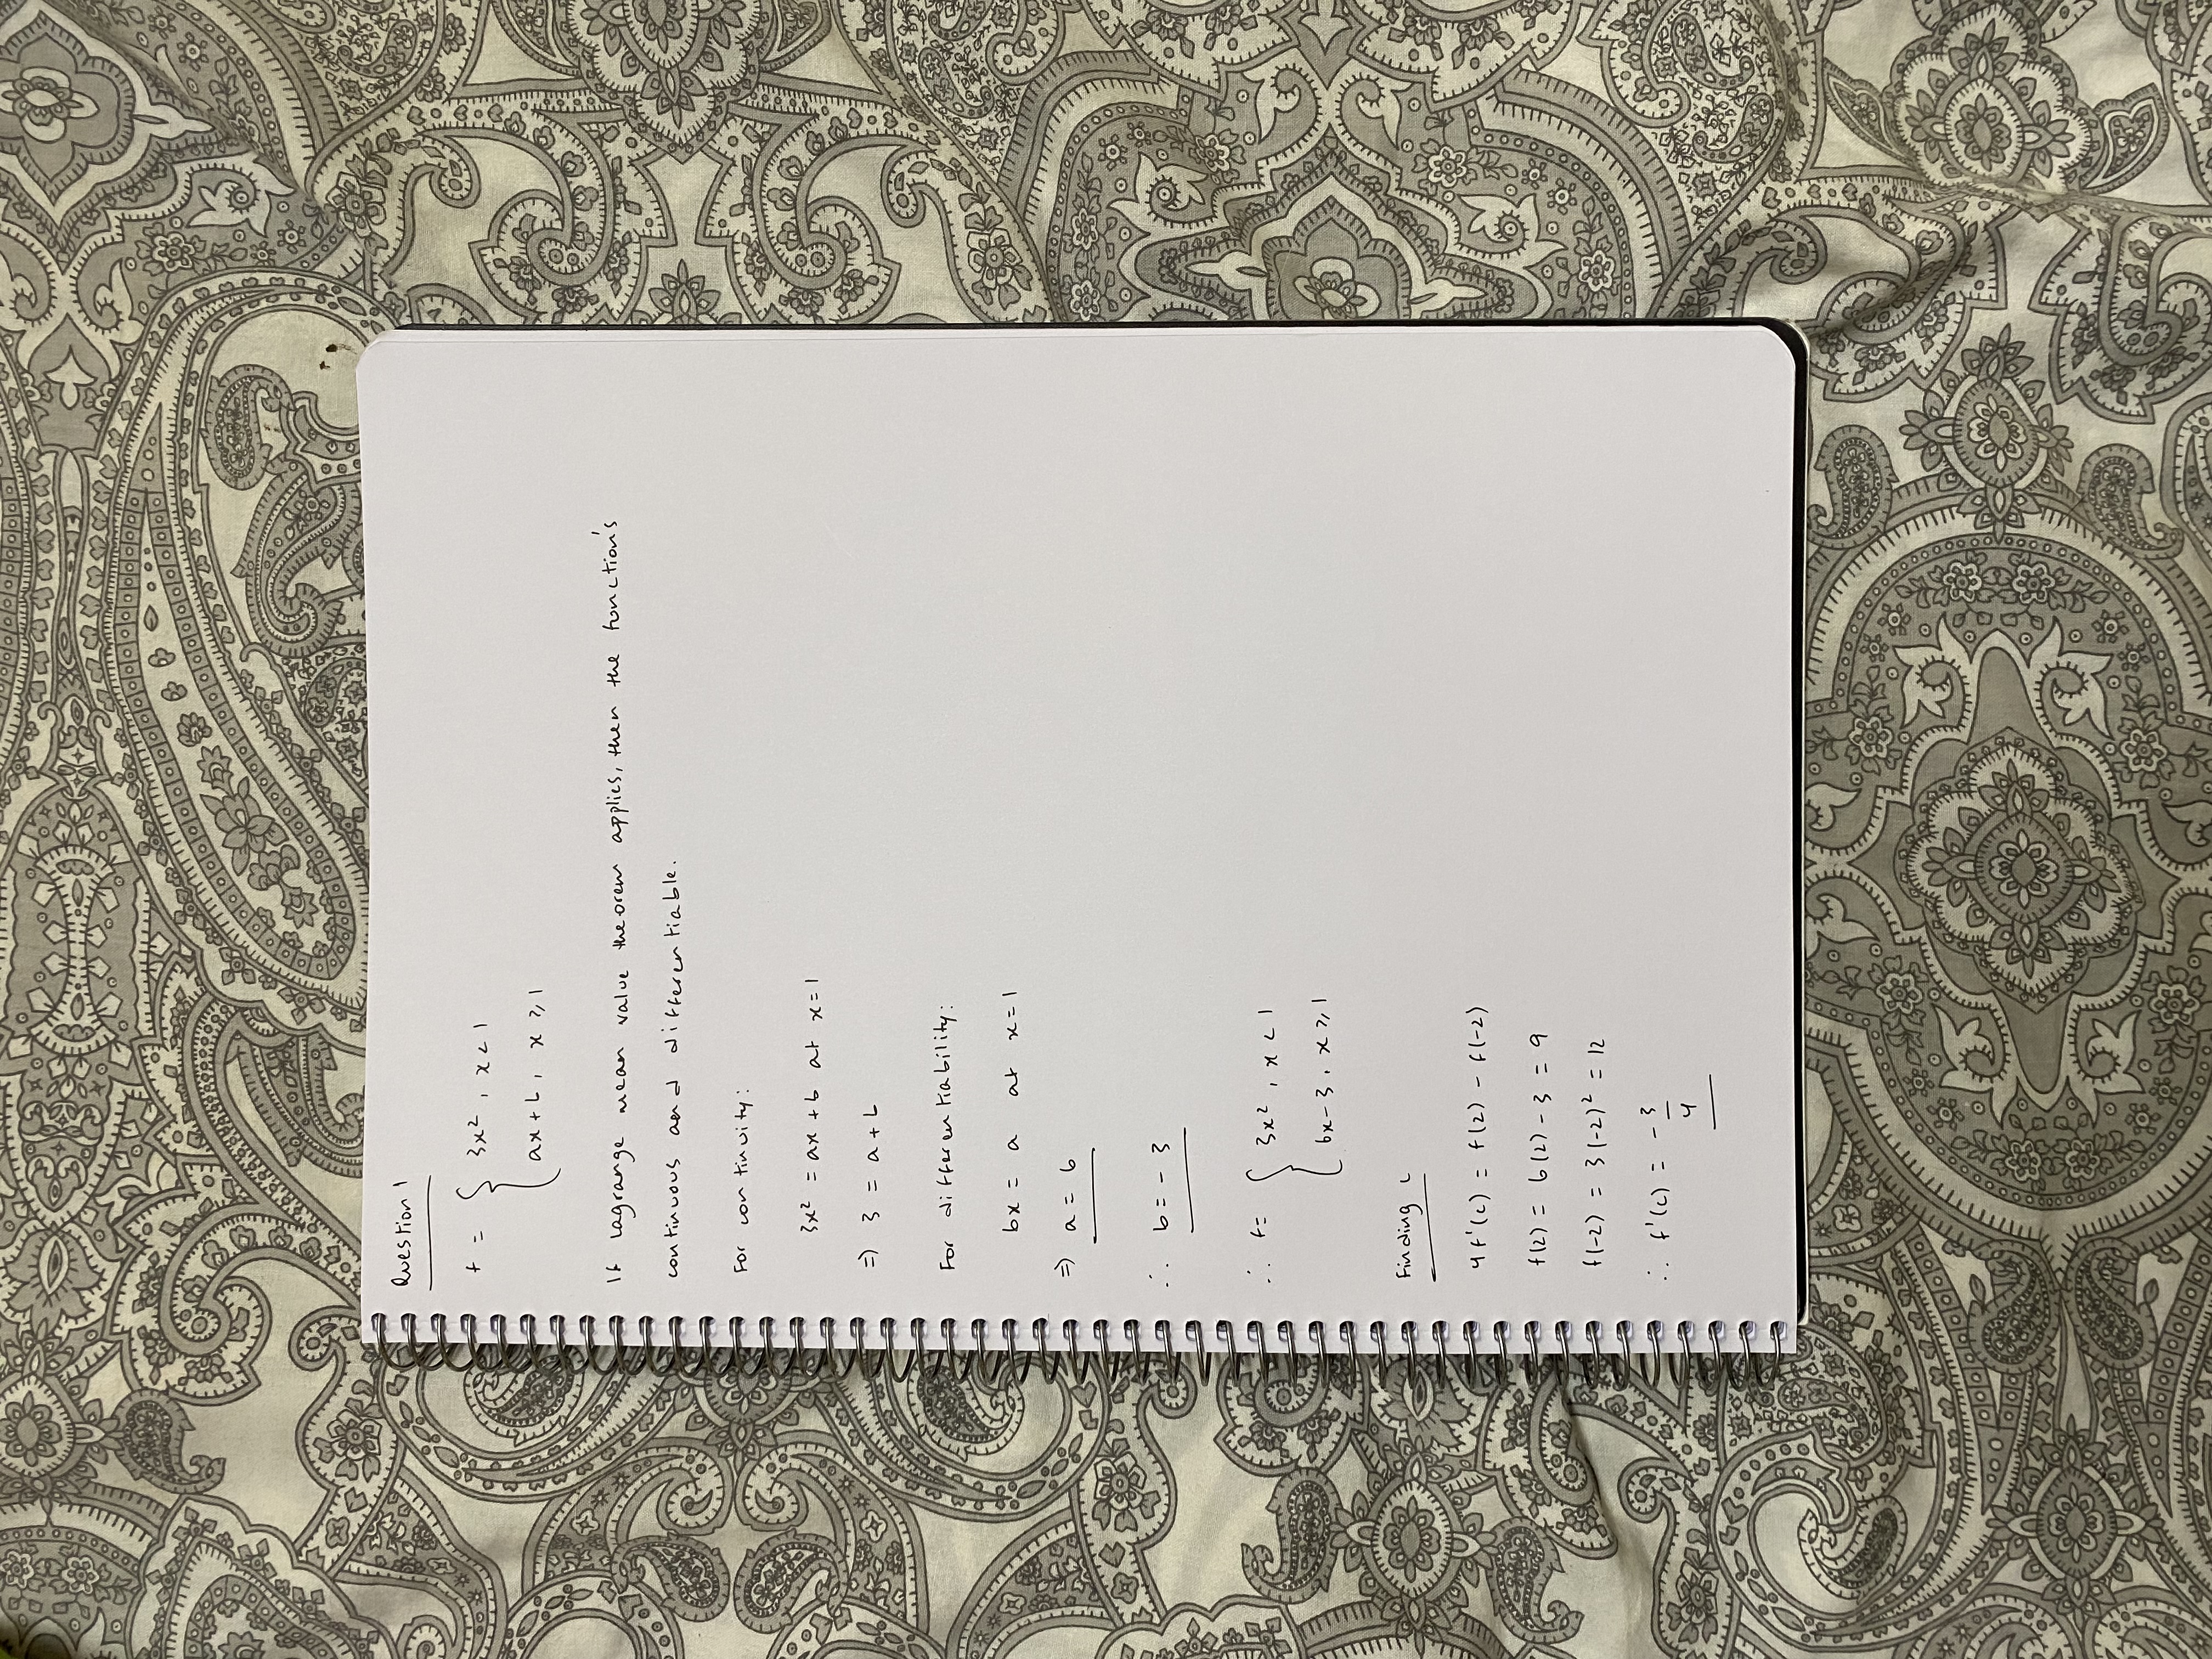 Question 1
f = { 3x², x < 1
ax + b, x ⩾ 1
If lagrange mean value theorem applies, then the function's
continuous and differentiable.
For continuity:
3x² = ax + b at x = 1
=> 3 = a + b
For differentiability:
6x = a at x = 1
=> a = 6
∴ b = - 3
∴ f = { 3x², x < 1
6x - 3, x ⩾ 1
Finding c
4f'(c) = f(2) - f(-2)
f(2) = 6(2) - 3 = 9
f(-2) = 3(-2)² = 12
∴ f'(c) = - 3/4